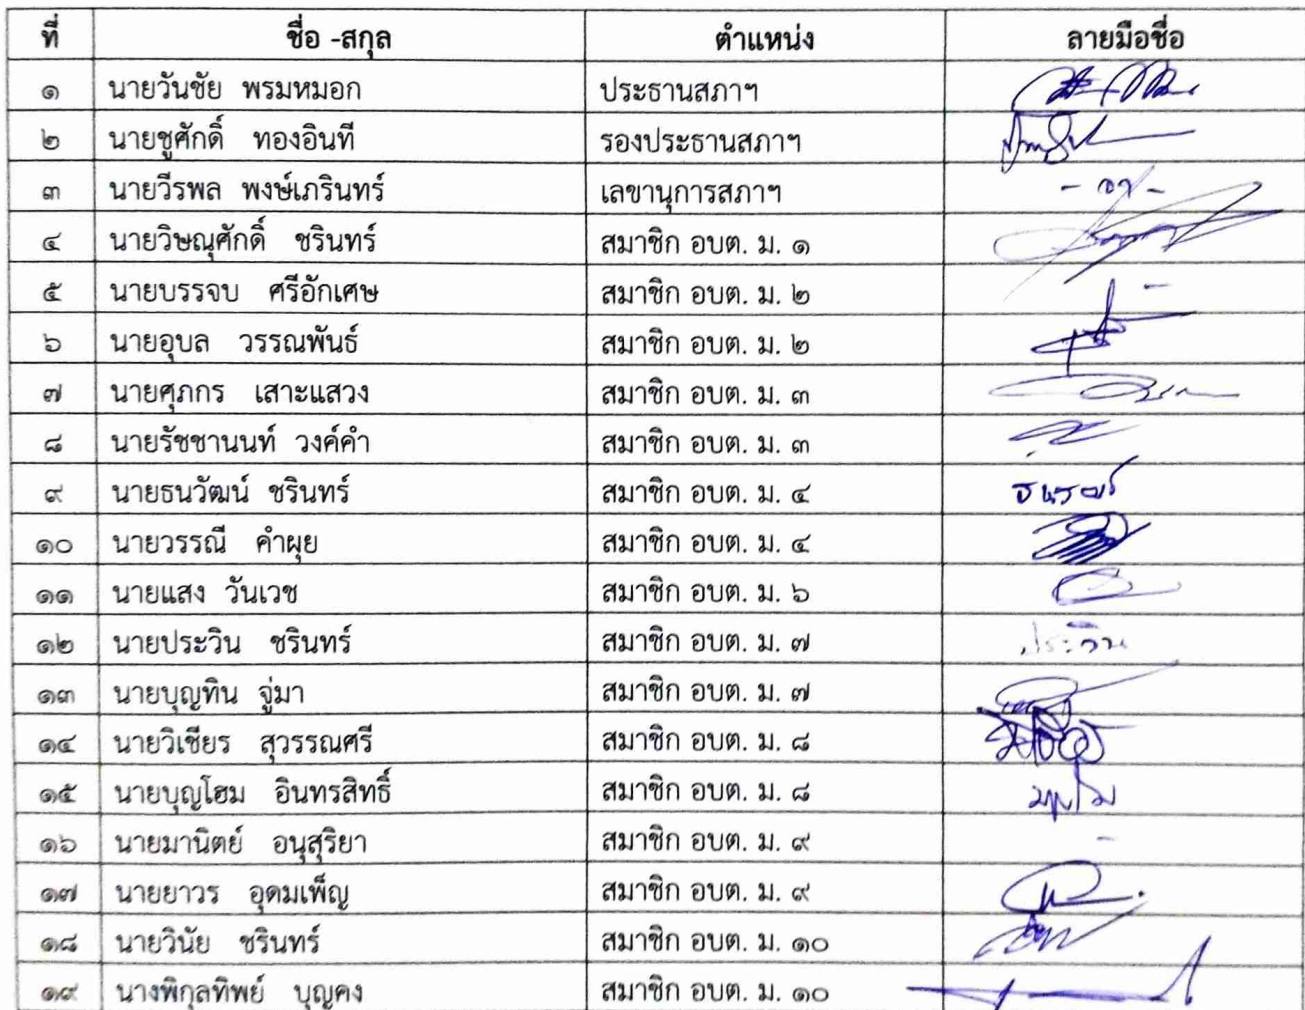 ที่ ชื่อ -สกุล ตำแหน่ง ลายมือชื่อ
๑ นายวันชัย พรมหมอก ประธานสภาฯ
๒ นายชูศักดิ์ ทองอินที รองประธานสภาฯ
๓ นายวีรพล พงษ์เภรินทร์ เลขานุการสภาฯ
๔ นายวิษณุศักดิ์ ชรินทร์ สมาชิก อบต. ม. ๑
๕ นายบรรจบ ศรีอักเศษ สมาชิก อบต. ม. ๒ -
๖ นายอุบล วรรณพันธ์ สมาชิก อบต. ม. ๒
๗ นายศุภกร เสาะแสวง สมาชิก อบต. ม. ๓
๘ นายรัชชานนท์ วงค์คำ สมาชิก อบต. ม. ๓
๙ นายธนวัฒน์ ชรินทร์ สมาชิก อบต. ม. ๔
๑๐ นายวรรณี คำผุย สมาชิก อบต. ม. ๔
๑๑ นายแสง วันเวช สมาชิก อบต. ม. ๖
๑๒ นายประวิน ชรินทร์ สมาชิก อบต. ม. ๗ ประวิน
๑๓ นายบุญทิน จู่มา สมาชิก อบต. ม. ๗
๑๔ นายวิเชียร สุวรรณศรี สมาชิก อบต. ม. ๘
๑๕ นายบุญโฮม อินทรสิทธิ์ สมาชิก อบต. ม. ๘
๑๖ นายมานิตย์ อนุสุริยา สมาชิก อบต. ม. ๙ -
๑๗ นายยาวร อุดมเพ็ญ สมาชิก อบต. ม. ๙
๑๘ นายวินัย ชรินทร์ สมาชิก อบต. ม. ๑๐
๑๙ นางพิกุลทิพย์ บุญคง สมาชิก อบต. ม. ๑๐